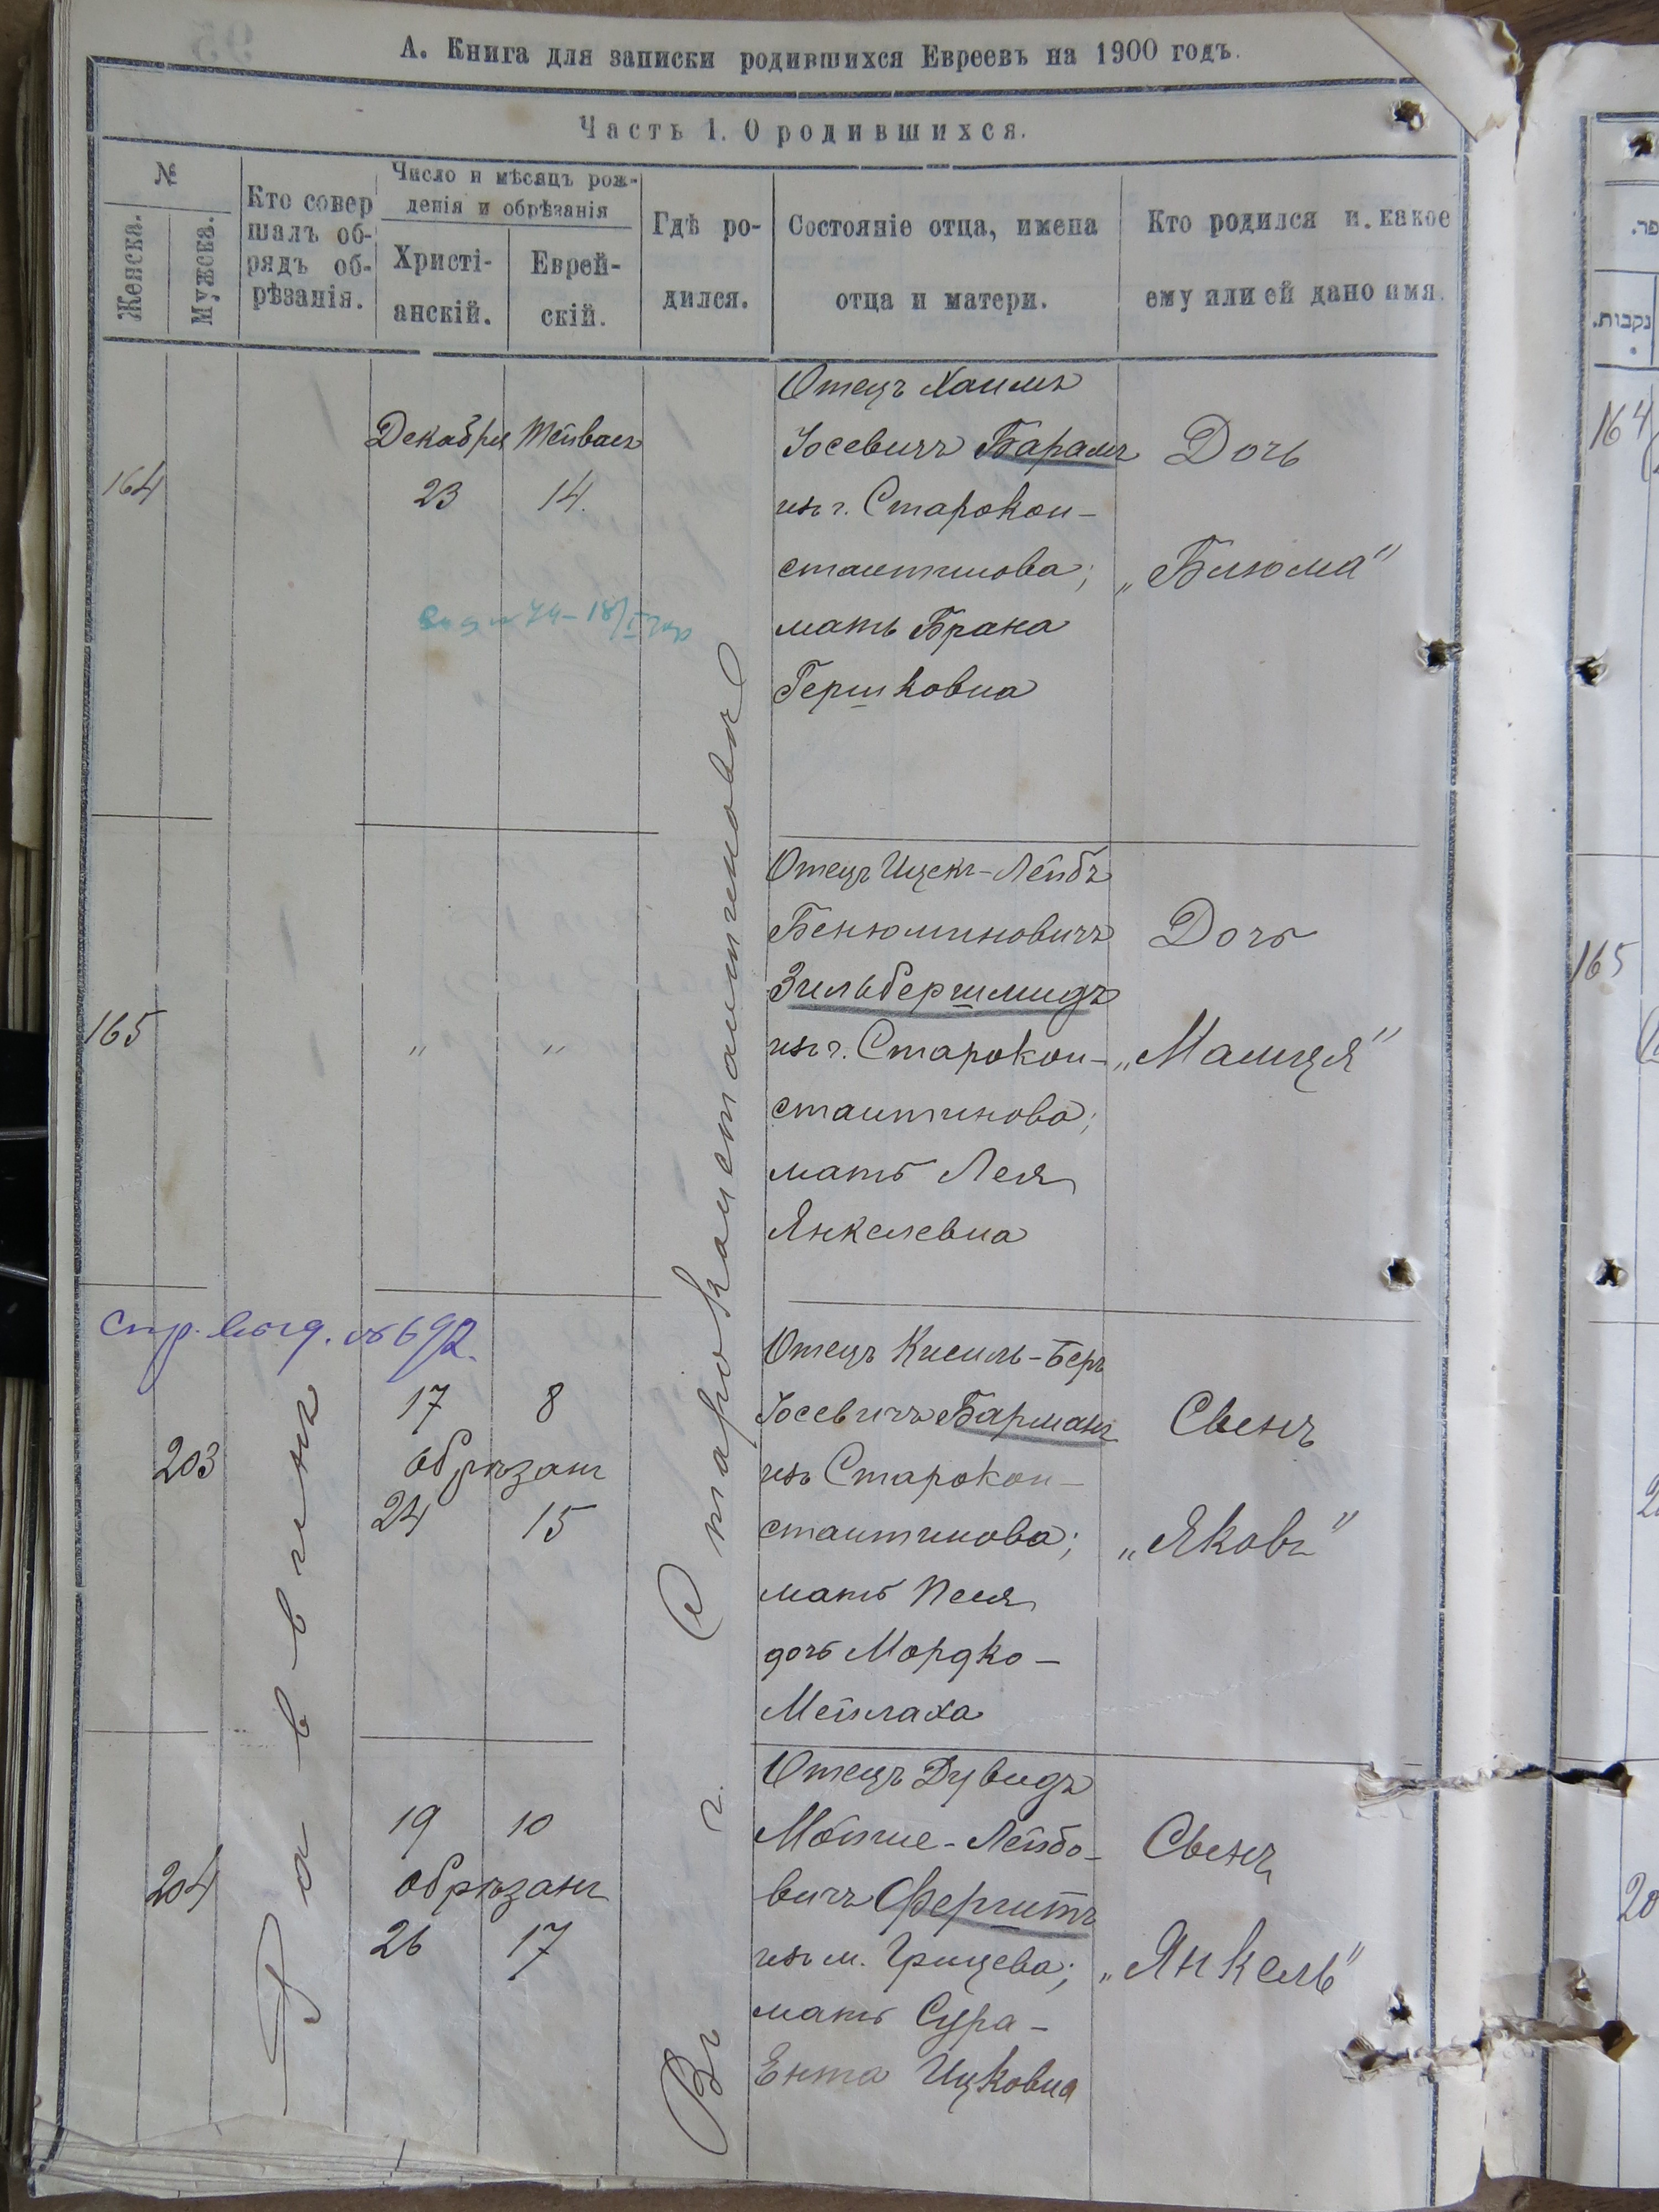 А. Книга для записки родившихся Евреевъ на 1900 годъ.
Часть 1. О родившихся.
№
Женска.
Мужска.
Кто совер
шалъ об-
рядъ об-
рѣзанія.
Число и мѣсяцъ рож-
денія и обрѣзанія
Христі-
анскій.
Еврей-
скій.
Гдѣ ро-
дился.
Состояніе отца, имена
отца и матери.
Кто родился и какое
ему или ей дано имя.
164
Декабря
23
Тейваса
14.
Отецъ Хаимъ
Іосевичъ Барамъ
изъ г. Старокон-
стантинова;
мать Брана
Гершковна
Дочь
„Блюма"
165
" "
Отецъ Ицекъ-Лейбъ
Бенюминовичъ
Зильбершмидъ
изъ г. Старокон-
стантинова;
мать Лея
Янкелевна
Дочь
„Малця"
стр. выд. № 692.
203
17 8
обрѣзанъ
24 15
Отецъ Кисиль-Беръ
Іосевичъ Барманъ
изъ Старокон-
стантинова;
мать Песя
дочь Мордко-
Мейлаха
Сынъ
„Яковъ"
204
19 10
обрѣзанъ
26 17
Отецъ Дувидъ
Мойше-Лейбо-
вичъ
изъ м. Грицева;
мать Сура-
Ента Ицковна
Сынъ
„Янкель"
Раввинъ
Въ г. Староконстантиновѣ
נקבות.
164
165